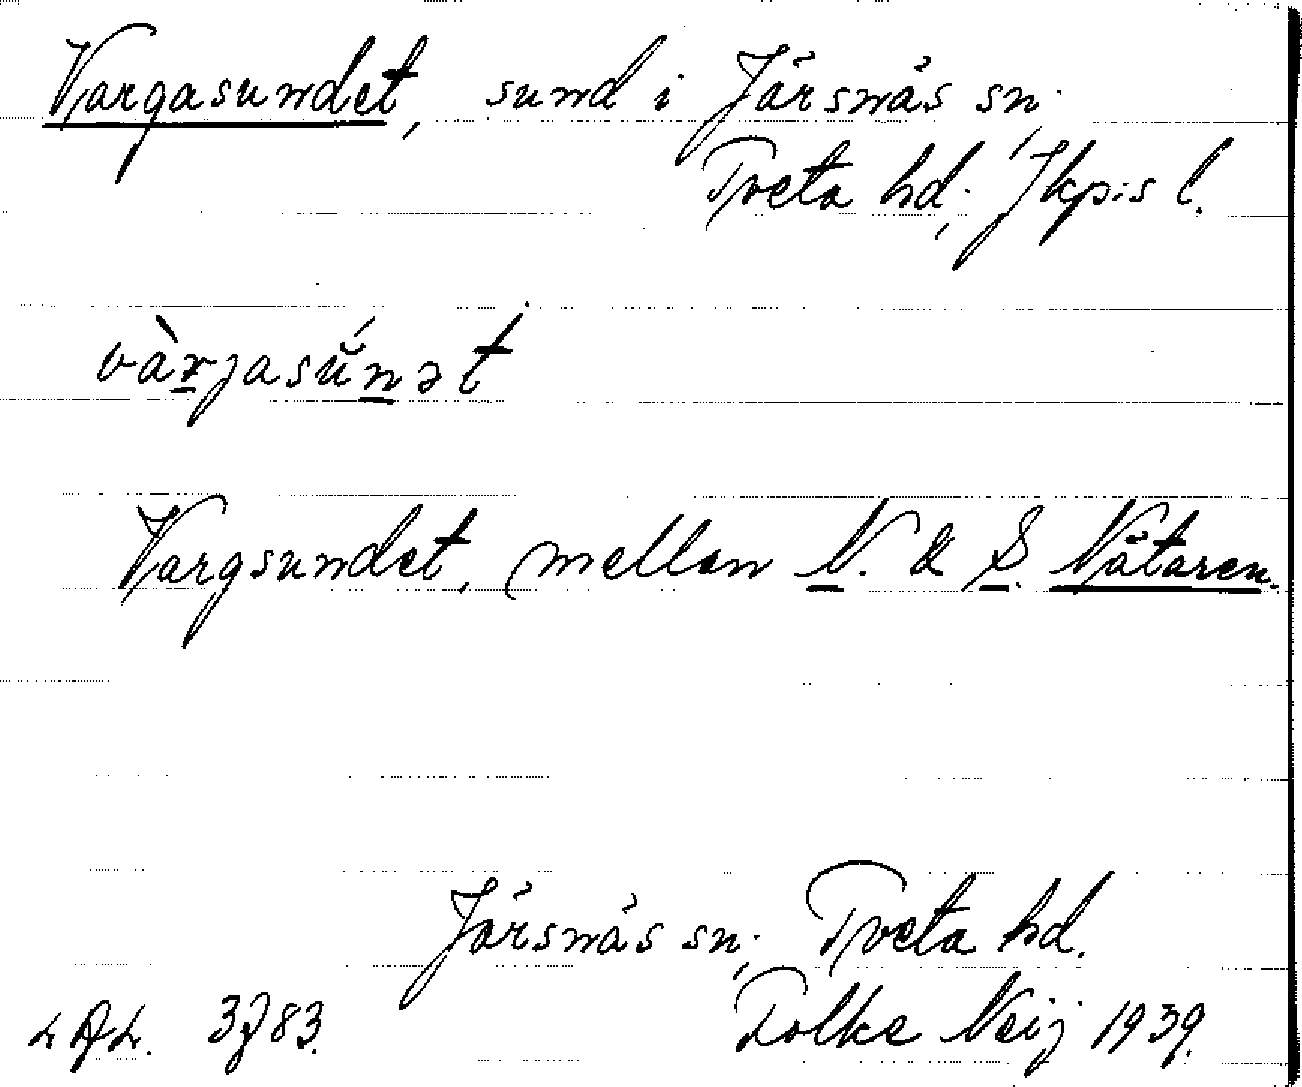 Vargasundet, sund i Järsnäs sn.,
Tveta hd., Jkp:s l.
vàrjasŭ́nət
Vargsundet, mellan N. & S. Nätaren.
Järsnäs sn., Tveta hd.
Folke Neij 1939.